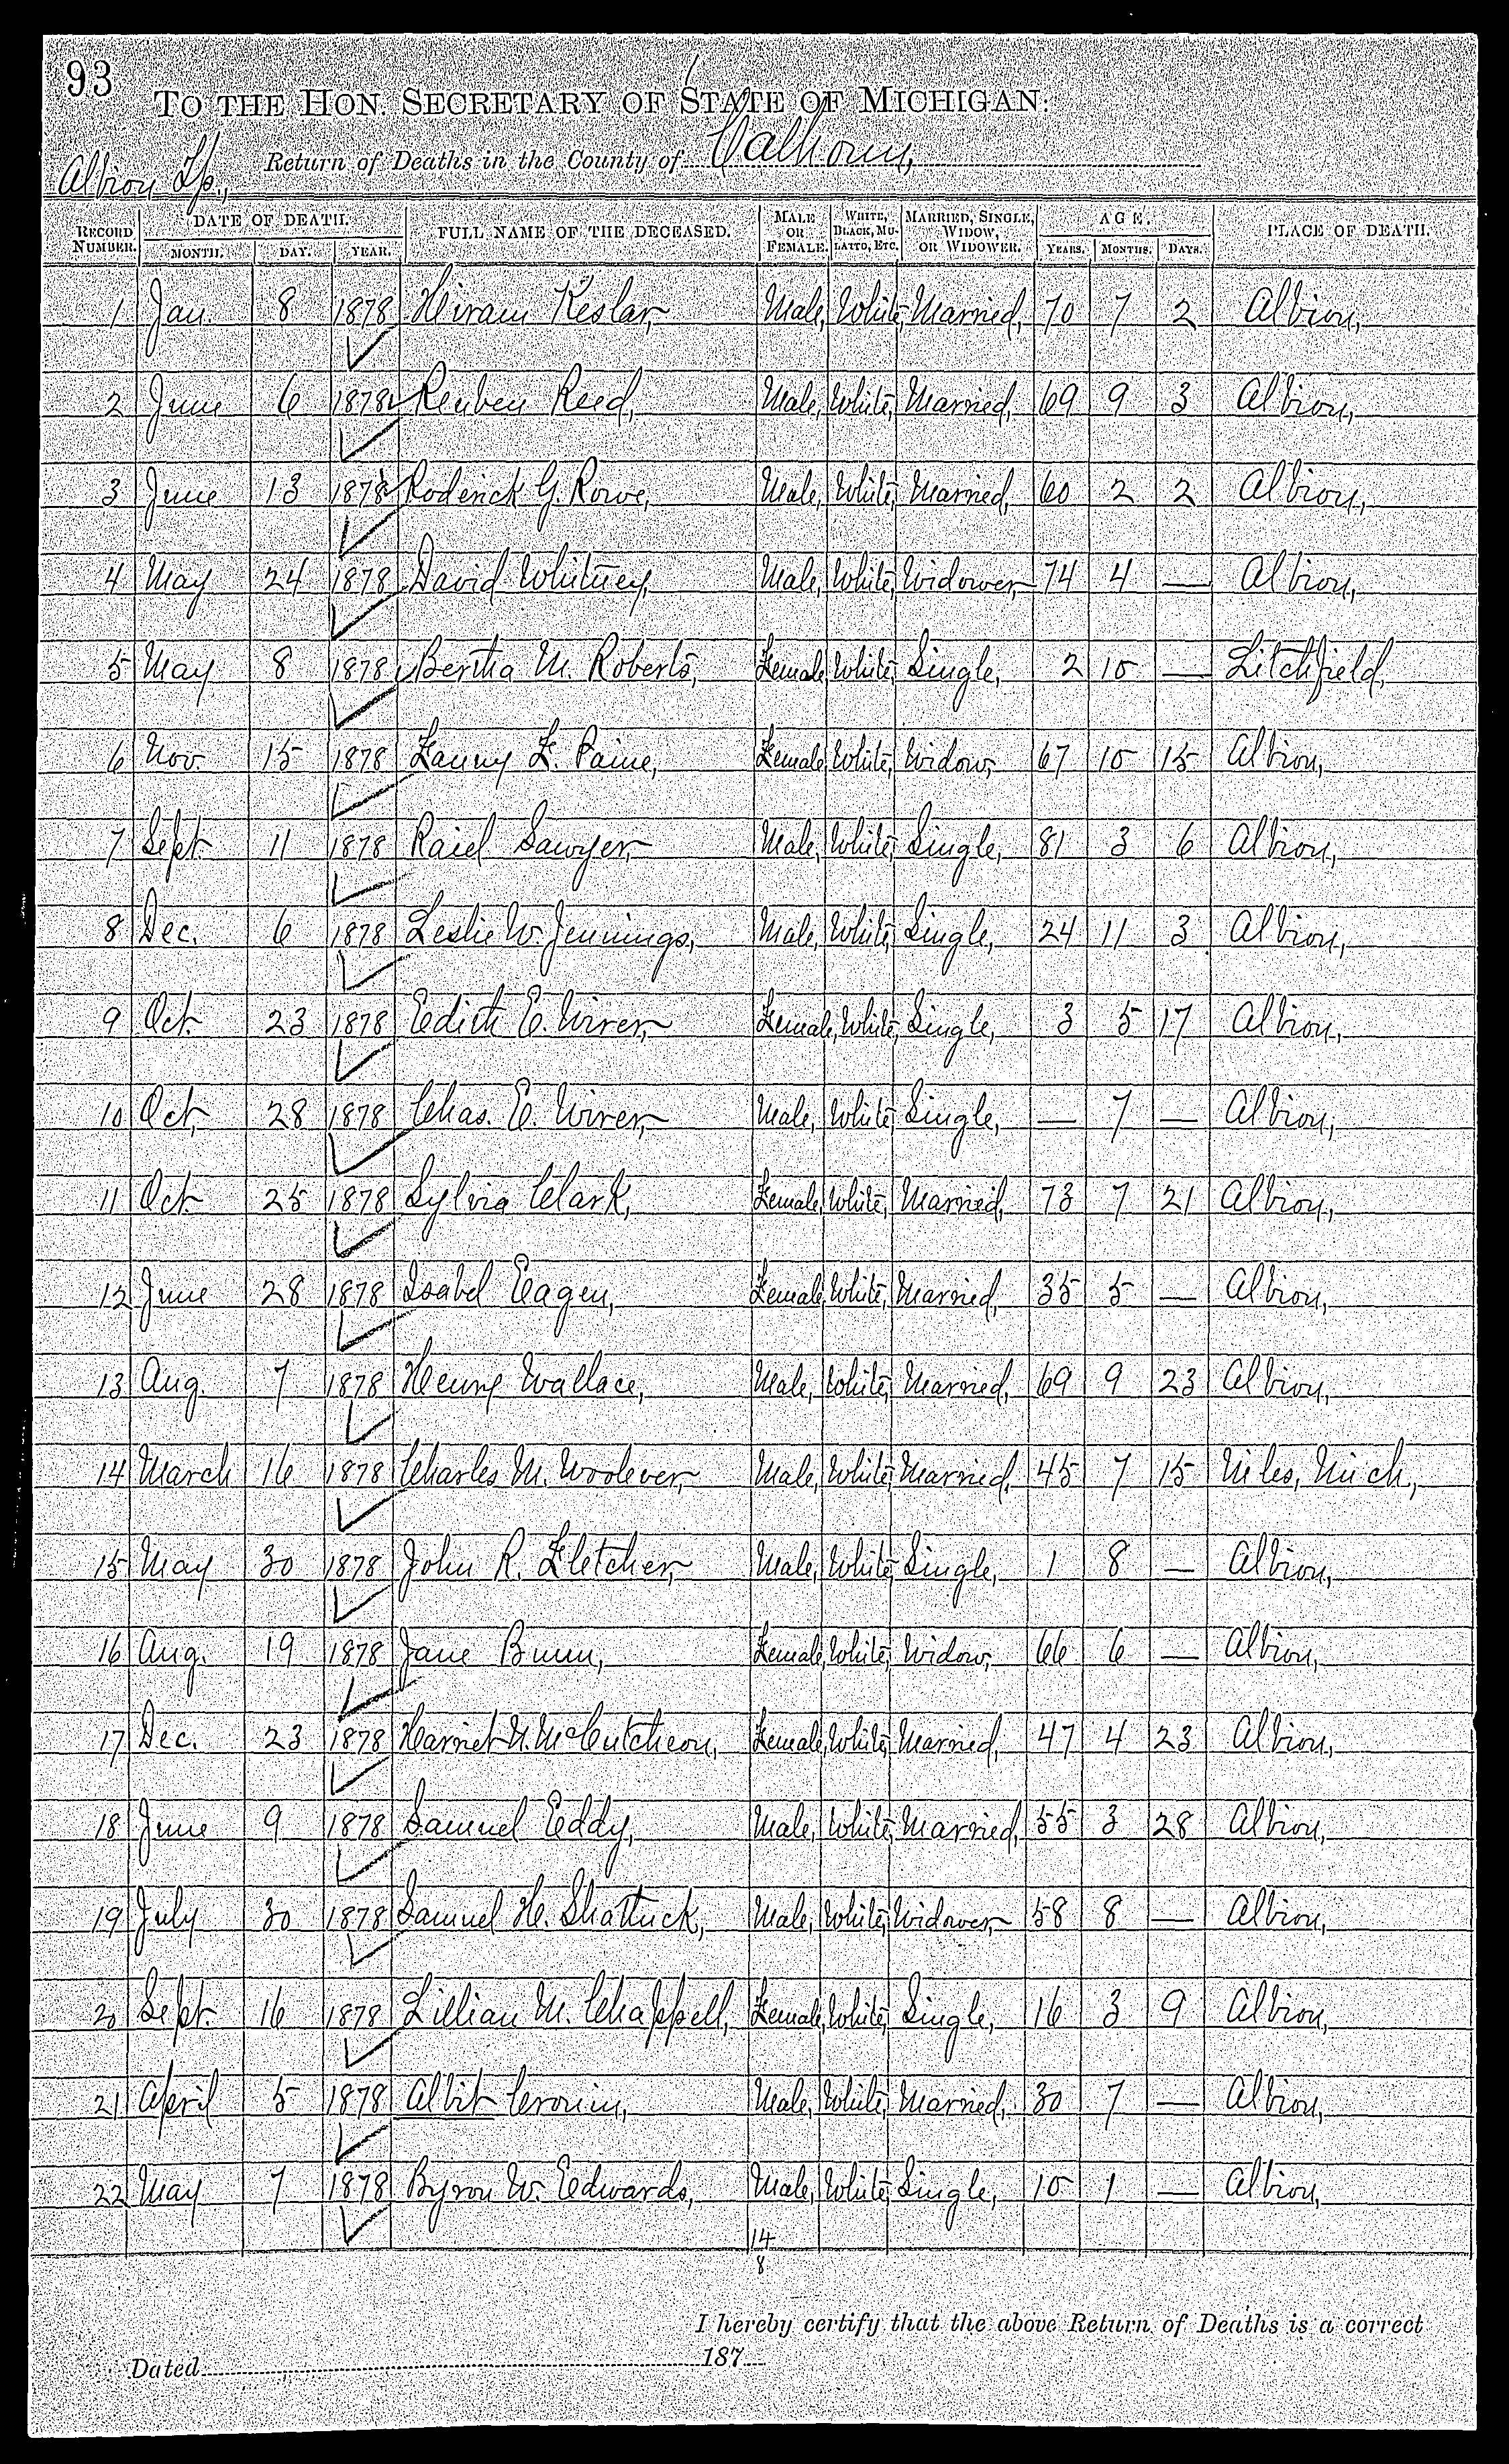 93
TO THE HON. SECRETARY OF STATE OF MICHIGAN:
Albion Tp., Return of Deaths in the County of Calhoun,
RECORD NUMBER. DATE OF DEATH. MONTH. DAY. YEAR. FULL NAME OF THE DECEASED. MALE OR FEMALE. WHITE, BLACK, MULATTO, ETC. MARRIED, SINGLE, WIDOW, OR WIDOWER. AGE. YEARS. MONTHS. DAYS. PLACE OF DEATH.
1 Jan. 8 1878 Hiram Keslar, Male, White, Married, 70 7 2 Albion,
2 June 6 1878 Reuben Reed, Male, White, Married, 69 9 3 Albion,
3 June 13 1878 Roderick G. Rowe, Male, White, Married, 60 2 2 Albion,
4 May 24 1878 David Whitney, Male, White, Widower, 74 4 — Albion,
5 May 8 1878 Bertha M. Roberts, Female, White, Single, 2 10 — Litchfield,
6 Nov. 15 1878 Fanny F. Paine, Female, White, Widow, 67 10 15 Albion,
7 Sept. 11 1878 Raiel Sawyer, Male, White, Single, 81 3 6 Albion,
8 Dec. 6 1878 Leslie W. Jennings, Male, White, Single, 24 11 3 Albion,
9 Oct. 23 1878 Edith E. Wirer, Female, White, Single, 3 5 17 Albion,
10 Oct, 28 1878 Chas. E. Wirer, Male, White, Single, — 7 — Albion,
11 Oct. 25 1878 Sylvia Clark, Female, White, Married, 73 7 21 Albion,
12 June 28 1878 Isabel Eagen, Female, White, Married, 35 5 — Albion,
13 Aug. 7 1878 Henry Wallace, Male, White, Married, 69 9 23 Albion,
14 March 16 1878 Charles M. Woolever, Male, White, Married, 45 7 15 Niles, Mich,
15 May 30 1878 John R. Fletcher, Male, White, Single, 1 8 — Albion,
16 Aug. 19 1878 Jane Bunn, Female, White, Widow, 66 6 — Albion,
17 Dec. 23 1878 Harriet N. McCutcheon, Female, White, Married, 47 4 23 Albion,
18 June 9 1878 Samuel Eddy, Male, White, Married, 55 3 28 Albion,
19 July 30 1878 Samuel H. Shattuck, Male, White, Widower, 58 8 — Albion,
20 Sept. 16 1878 Lillian M. Chappell, Female, White, Single, 16 3 9 Albion,
21 April 5 1878 Albit Cronin, Male, White, Married, 30 7 — Albion,
22 May 7 1878 Byron W. Edwards, Male, White, Single, 10 1 — Albion,
14
8
I hereby certify that the above Return of Deaths is a correct
Dated 187